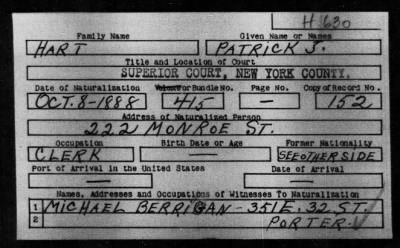 H 630
Family Name Given Name or Names
HART PATRICK J.
Title and Location of Court
SUPERIOR COURT, NEW YORK COUNTY.
Date of Naturalization Volume or Bundle No. Page No. Copy of Record No.
OCT. 8-1888 415 — 152
Address of Naturalized Person
222 MONROE ST.
Occupation Birth Date or Age Former Nationality
CLERK — SEE OTHER SIDE
Port of Arrival in the United States Date of Arrival
— —
Names, Addresses and Occupations of Witnesses To Naturalization
1 MICHAEL BERRIGAN - 351 E. 32 ST.
2 PORTER.